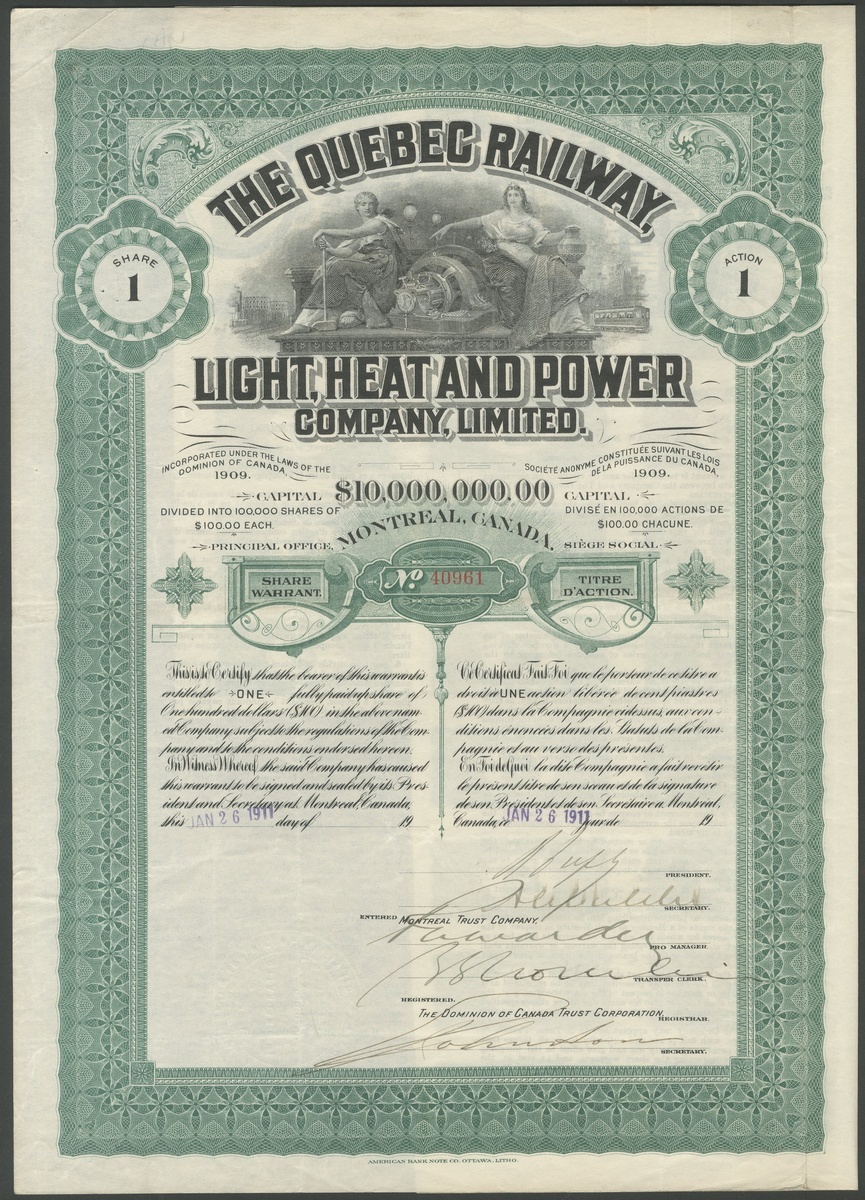 THE QUEBEC RAILWAY,
SHARE
1
ACTION
1
LIGHT, HEAT AND POWER
COMPANY, LIMITED.
INCORPORATED UNDER THE LAWS OF THE
DOMINION OF CANADA,
1909.
SOCIÉTÉ ANONYME CONSTITUÉE SUIVANT LES LOIS
DE LA PUISSANCE DU CANADA,
1909.
CAPITAL $10,000,000.00 CAPITAL
DIVIDED INTO 100,000 SHARES OF
$100.00 EACH.
DIVISÉ EN 100,000 ACTIONS DE
$100.00 CHACUNE.
PRINCIPAL OFFICE, MONTREAL, CANADA. SIÈGE SOCIAL
SHARE
WARRANT.
No. 40961
TITRE
D'ACTION.
This is to Certify that the bearer of this warrant is
entitled to ONE fully paid up share of
One hundred dollars ($100) in the above nam-
ed Company subject to the regulations of the Com-
pany and to the conditions endorsed hereon.
In Witness Whereof the said Company has caused
this warrant to be signed and sealed by its Pres-
ident and Secretary at Montreal, Canada,
this JAN 26 1911 day of 19
Ce Certificat Fait Foi que le porteur de ce titre a
droit à UNE action libérée de cent piastres
($100) dans la Compagnie ci dessus, aux con-
ditions énoncées dans les Statuts de la Com-
pagnie et au verso des présentes.
En Foi de Quoi la dite Compagnie a fait revêtir
le présent titre de son sceau et de la signature
de son Président et de son Secrétaire à Montréal,
Canada, ce JAN 26 1911 jour de 19
PRESIDENT.
SECRETARY.
ENTERED MONTREAL TRUST COMPANY.
PRO MANAGER.
TRANSFER CLERK.
REGISTERED.
THE DOMINION OF CANADA TRUST CORPORATION,
REGISTRAR.
Johnston
SECRETARY.
AMERICAN BANK NOTE CO. OTTAWA, LITHO.